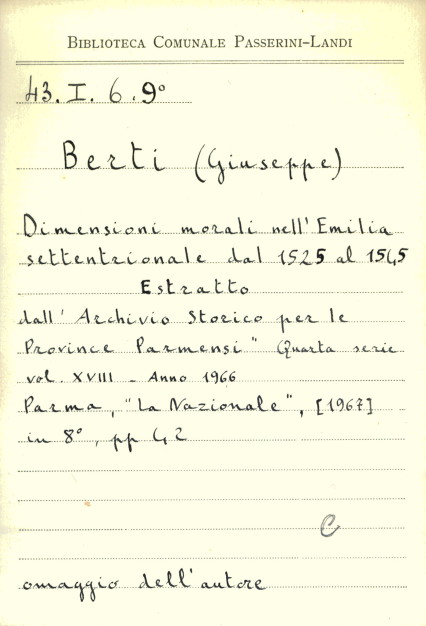 BIBLIOTECA COMUNALE PASSERINI-LANDI
43. I. 6. 9°
Berti (Giuseppe)
Dimensioni morali nell'Emilia
settentrionale dal 1525 al 1545
Estratto
dall'Archivio Storico per le
Province Parmensi" Quarta serie
vol. XVIII - Anno 1966
Parma, "La Nazionale", [1967]
in 8°, pp 42
C
omaggio dell'autore